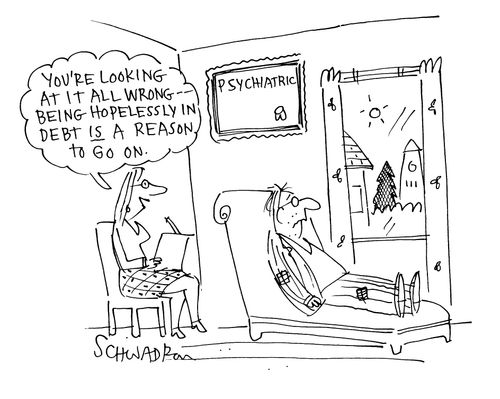 YOU'RE LOOKING
AT IT ALL WRONG--
BEING HOPELESSLY IN
DEBT IS A REASON
TO GO ON.
PSYCHIATRIC
SCHWADRON